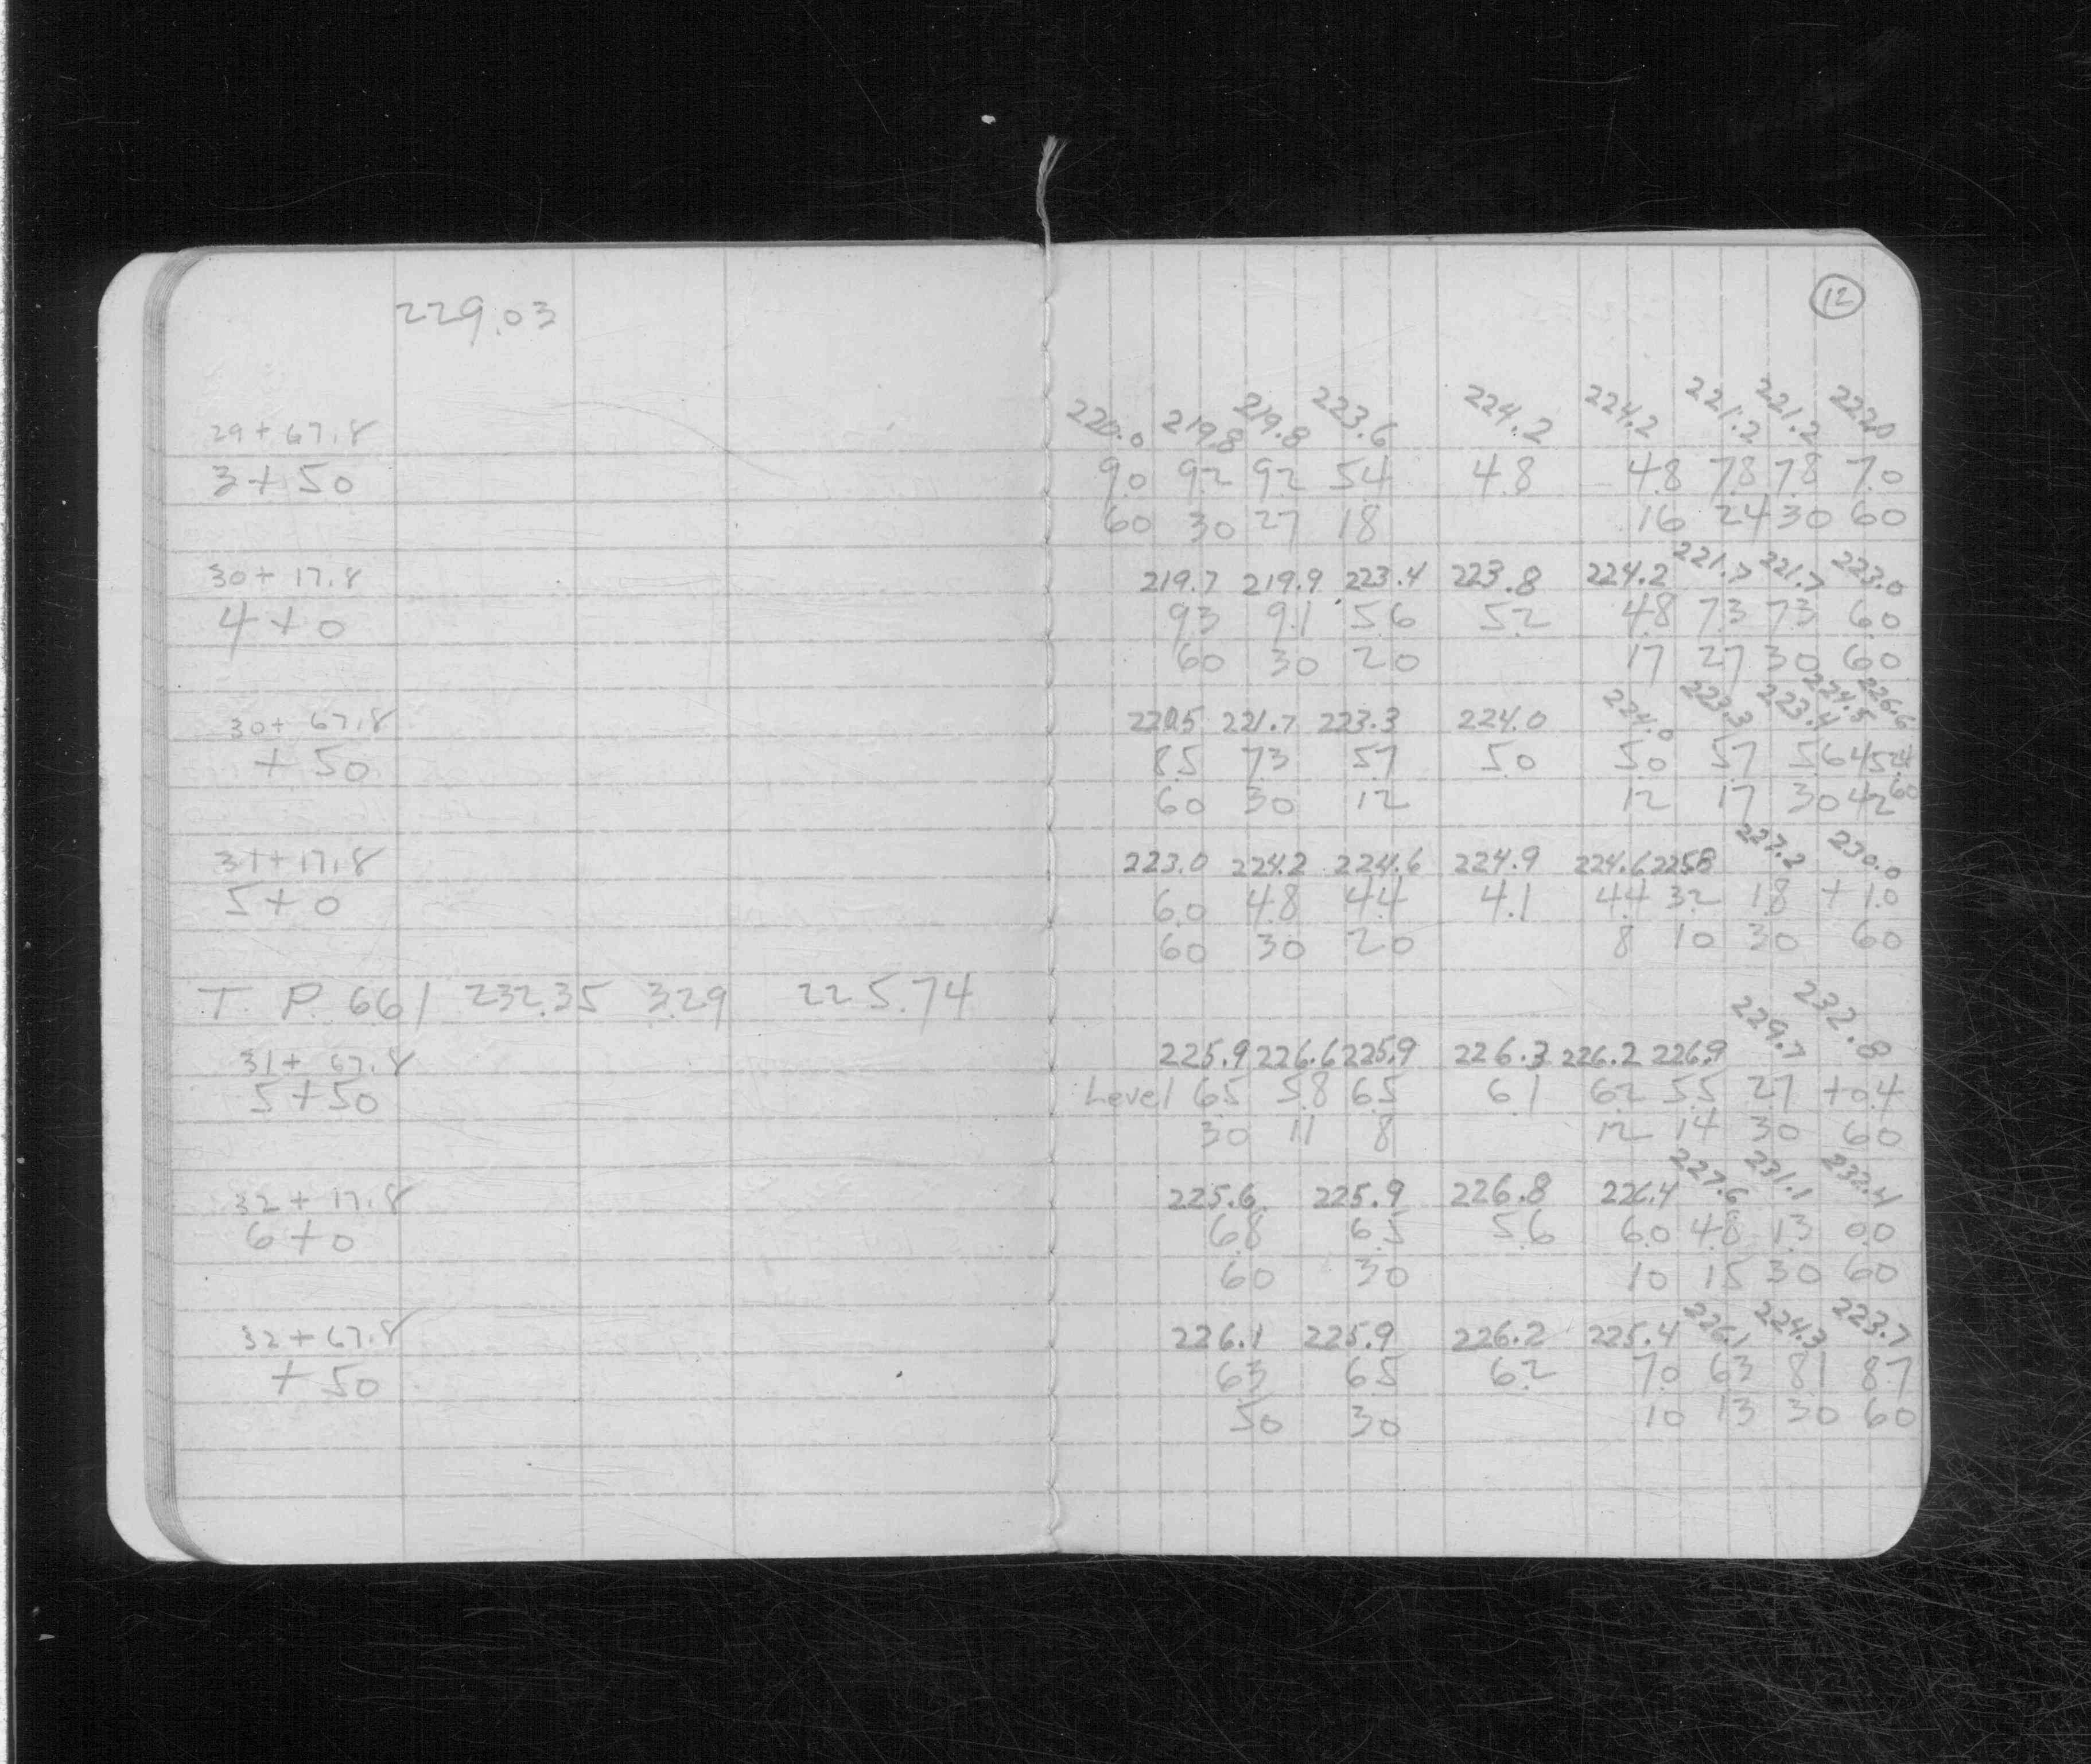 229.03
12
220.0 219.8 219.8 223.6 224.2 224.2 221.2 221.2 222.0
29+67.8
3+50 9.0 9.2 9.2 5.4 4.8 4.8 7.8 7.8 7.0
60 30 27 18 16 24 30 60
30+17.8 219.7 219.9 223.4 223.8 224.2 221.7 221.7 223.0
4+0 9.3 9.1 5.6 5.2 4.8 7.3 7.3 6.0
60 30 20 17 27 30 60
30+67.8 220.5 221.7 223.3 224.0 224.0 223.3 223.4 224.5 226.6
+50 8.5 7.3 5.7 5.0 5.0 5.7 5.6 4.5 2.4
60 30 12 12 17 30 42 60
31+17.8 223.0 224.2 224.6 224.9 224.6 225.8 227.2 230.0
5+0 6.0 4.8 4.4 4.1 4.4 3.2 1.8 +1.0
60 30 20 8 10 30 60
T. P. 6.61 232.35 3.29 225.74
31+67.8 225.9 226.6 225.9 226.3 226.2 226.9 229.7 232.8
5+50 Level 6.5 5.8 6.5 6.1 6.2 5.5 2.7 +0.4
30 11 8 12 14 30 60
32+17.8 225.6 225.9 226.8 226.4 227.6 231.1 232.4
6+0 6.8 6.5 5.6 6.0 4.8 1.3 0.0
60 30 10 15 30 60
32+67.8 226.1 225.9 226.2 225.4 226.1 224.3 223.7
+50 6.3 6.5 6.2 7.0 6.3 8.1 8.7
50 30 10 13 30 60